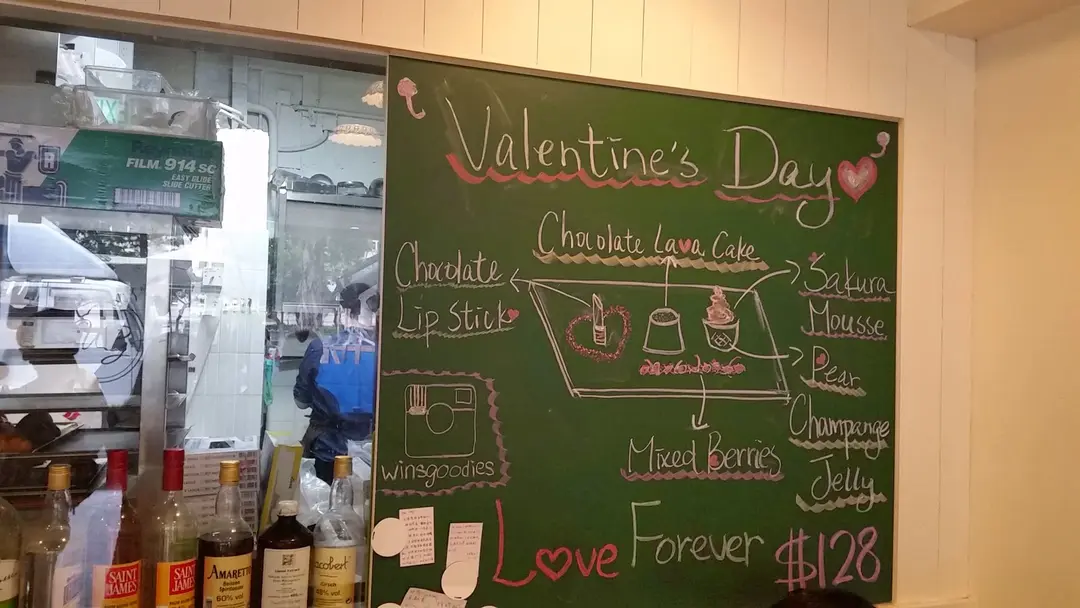 Valentine's Day
Chocolate Lava Cake
Chocolate
Lip Stick
Sakura
Mousse
Pear
Champange
Jelly
Mixed Berries
winsgoodies
Love Forever $128
FILM. 914 SC
EASY GLIDE
SLIDE CUTTER
SAINT
JAMES
SAINT
JAMES
AMARETT
60% vol
acobert
% vol